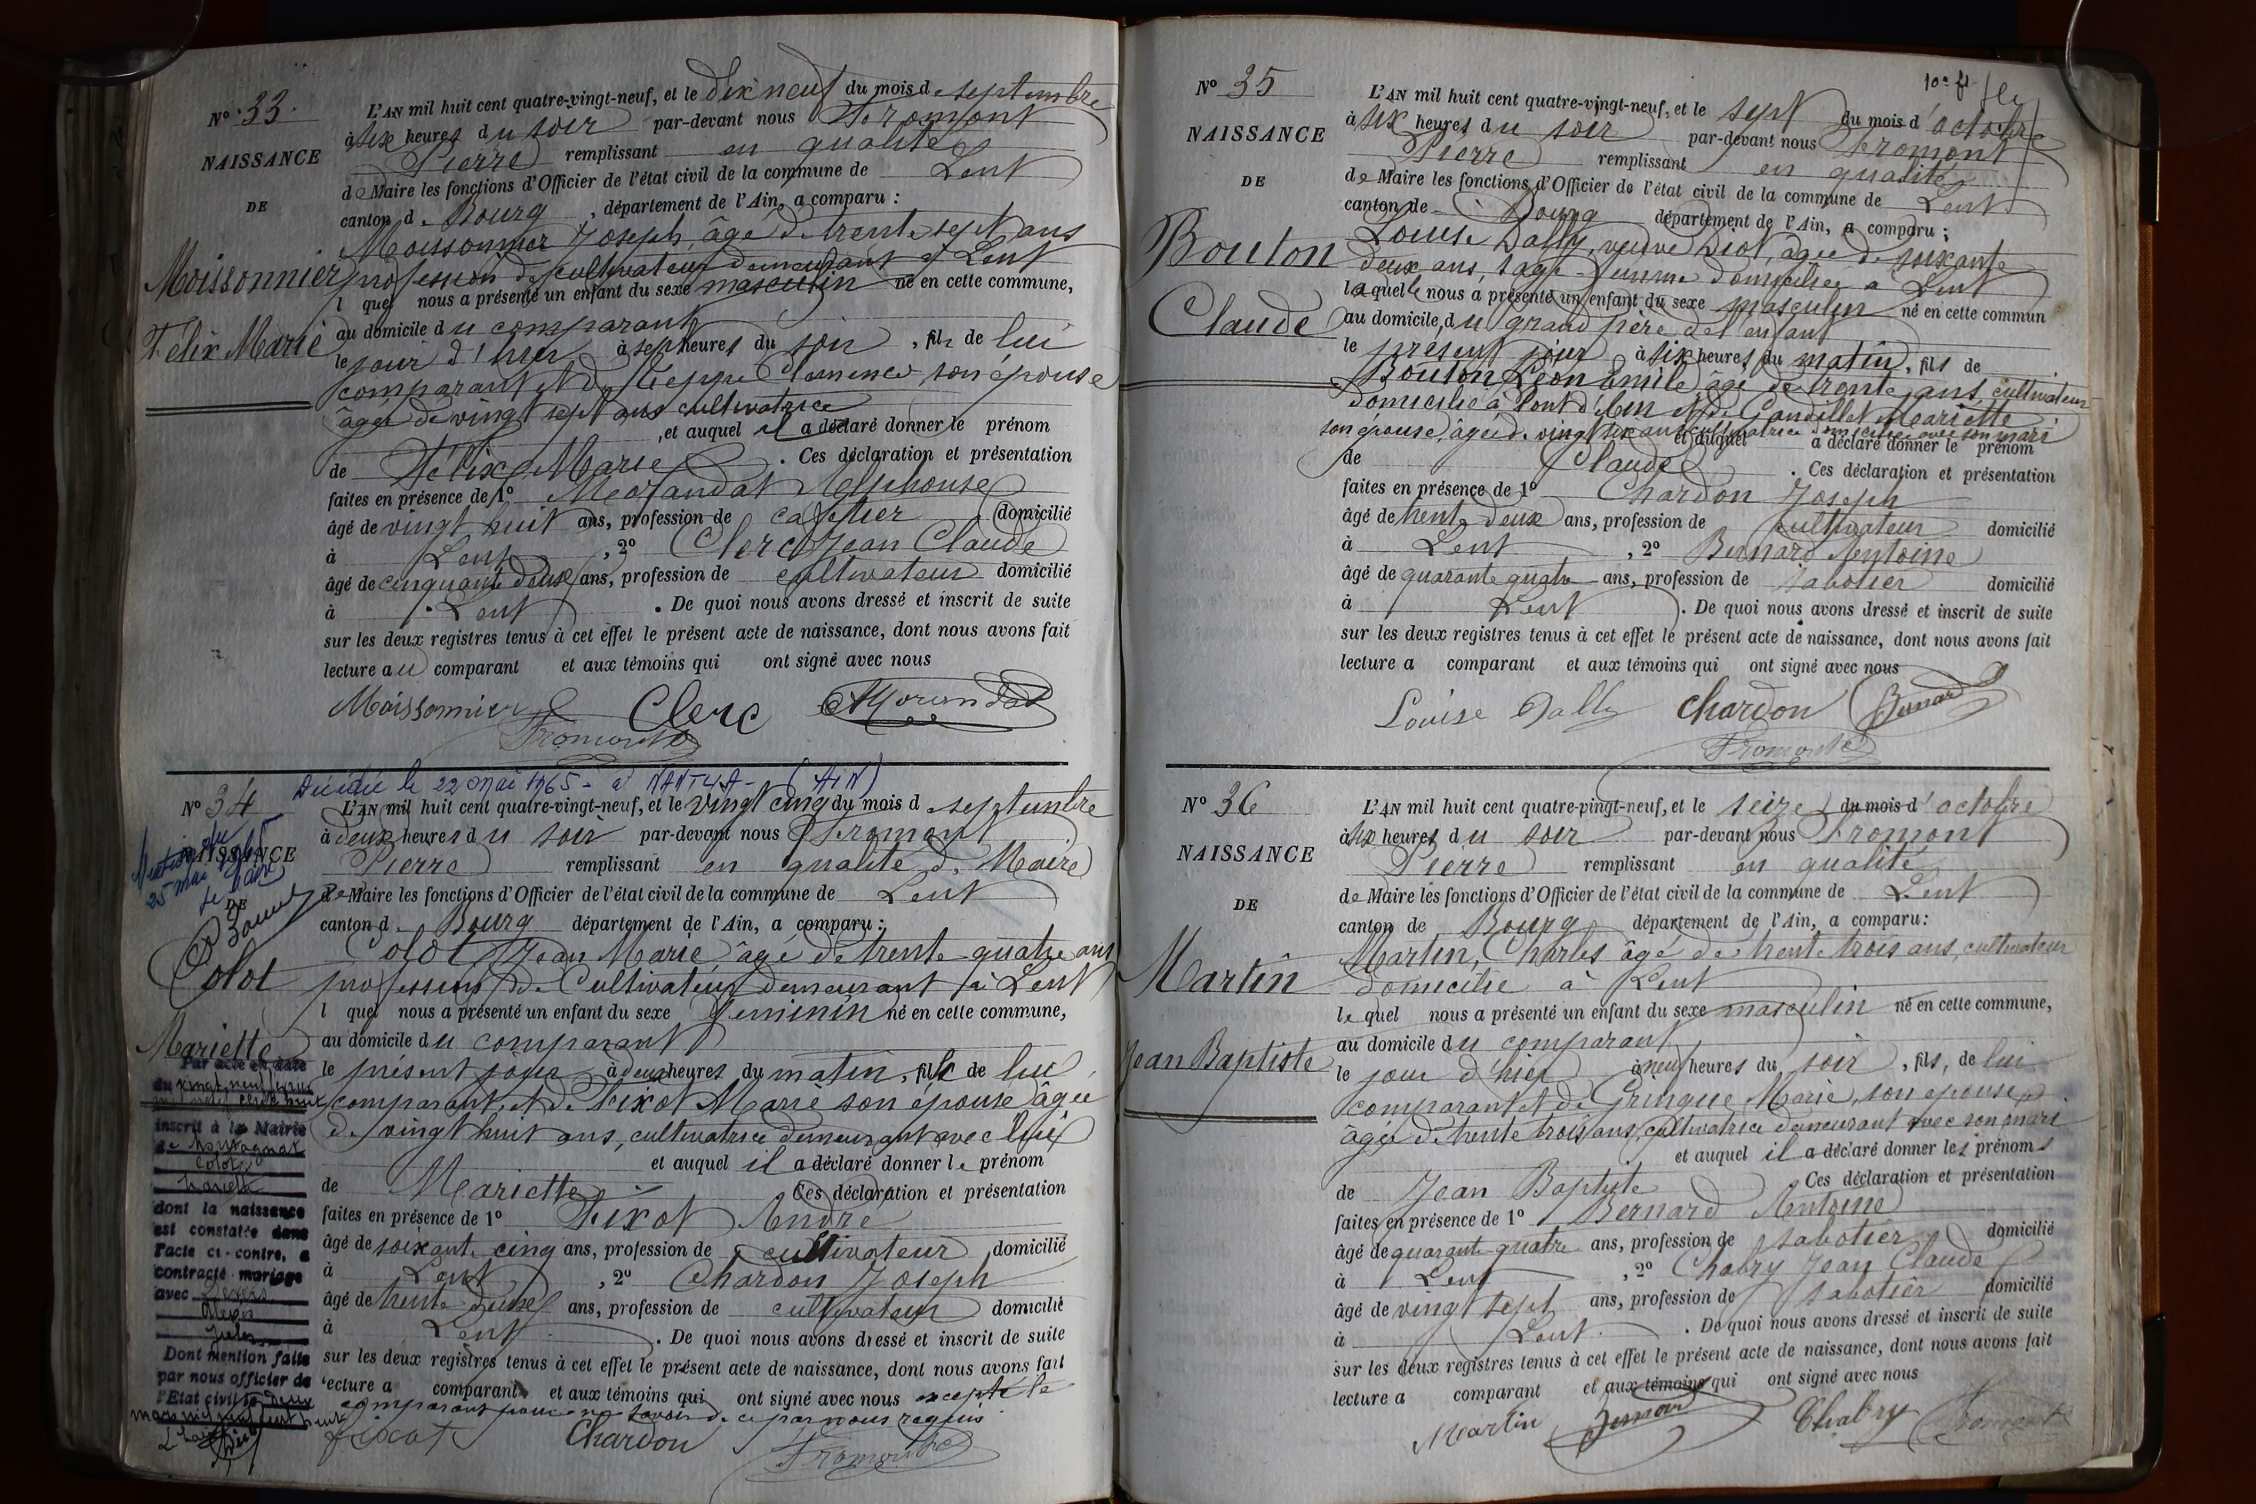 N° 33.
NAISSANCE
DE
Moissonnier
Félix Marie
L'AN mil huit cent quatre-vingt-neuf, et le dix neuf du mois d septembre
à six heures du soir par-devant nous Fromont
Pierre remplissant en qualité
de Maire les fonctions d'Officier de l'état civil de la commune de Lent
canton d. Bourg, département de l'Ain, a comparu :
Moissonnier Joseph, âgé de trente sept ans
profession de cultivateur demeurant à Lent
l quel nous a présenté un enfant du sexe masculin né en cette commune,
au domicile du comparant
le jour d'hier à sept heures du soir, fils de lui
comparant et de Teppe Clémence son épouse
âgée de vingt sept ans cultivatrice
, et auquel il a déclaré donner le prénom
de Félix Marie. Ces déclaration et présentation
faites en présence de 1° Morandat Alphonse
âgé de vingt huit ans, profession de cafetier domicilié
à Lent, 2° Clerc Jean Claude
âgé de cinquante deux ans, profession de cultivateur domicilié
à Lent. De quoi nous avons dressé et inscrit de suite
sur les deux registres tenus à cet effet le présent acte de naissance, dont nous avons fait
lecture au comparant et aux témoins qui ont signé avec nous
Moissonnier Clerc AMorandat
Fromont
Décédée le 22 mai 1965 - à NANTUA - (AIN)
N° 34
NAISSANCE
DE
Mention du
25 mai 1965
Le Maire
Colot
Mariette
Par acte en date
du vingt neuf
mil neuf cent huit
inscrit à la Mairie
de Montagnat
Colot
Mariette
dont la naissance
est constatée dans
l'acte ci-contre, a
contracté mariage
avec
Jules
Dont mention faite
par nous officier de
l'Etat civil le deux
mars mil neuf cent huit
L'AN mil huit cent quatre-vingt-neuf, et le vingt cinq du mois d septembre
à deux heures du soir par-devant nous Fromont
Pierre remplissant en qualité de Maire
de Maire les fonctions d'Officier de l'état civil de la commune de Lent
canton d. Bourg département de l'Ain, a comparu :
Colot Jean Marie, âgé de trente quatre ans
profession de Cultivateur demeurant à Lent
l quel nous a présenté un enfant du sexe féminin né en cette commune,
au domicile du comparant
le présent jour à deux heures du matin, fille de lui
comparant, et de Fixot Marie son épouse âgée
de vingt huit ans, cultivatrice demeurant avec lui
et auquel il a déclaré donner le prénom
de Mariette. Ces déclaration et présentation
faites en présence de 1° Fixot André
âgé de soixante cinq ans, profession de cultivateur domicilié
à Lent, 2° Chardon Joseph
âgé de trente deux ans, profession de cultivateur domicilié
à Lent. De quoi nous avons dressé et inscrit de suite
sur les deux registres tenus à cet effet le présent acte de naissance, dont nous avons fait
lecture a comparant et aux témoins qui ont signé avec nous excepté le
comparant pour ne savoir de ce par nous requis
fixot Chardon
Fromont
N° 35
NAISSANCE
DE
Bouton
Claude
L'AN mil huit cent quatre-vingt-neuf, et le sept du mois d'octobre
à six heures du soir par-devant nous Fromont
Pierre remplissant en qualité
de Maire les fonctions d'Officier de l'état civil de la commune de Lent
canton de Bourg département de l'Ain, a comparu ;
Louise Dally, veuve Diot, âgée de soixante
deux ans, sage-femme domiciliée à Lent
laquelle nous a présenté un enfant du sexe masculin né en cette commun
au domicile du grand père de l'enfant
le présent jour à six heures du matin, fils de
Bouton Léon Emile âgé de trente ans, cultivateur
domicilié à Pont d'Ain et de Gandillet Mariette
son épouse, âgée de vingt six ans cultivatrice domiciliée avec son mari
et auquel a déclaré donner le prénom
de Claude. Ces déclaration et présentation
faites en présence de 1° Chardon Joseph
âgé de trente deux ans, profession de cultivateur domicilié
à Lent, 2° Bernard Antoine
âgé de quarante quatre ans, profession de sabotier domicilié
à Lent. De quoi nous avons dressé et inscrit de suite
sur les deux registres tenus à cet effet le présent acte de naissance, dont nous avons fait
lecture a comparant et aux témoins qui ont signé avec nous
Louise Dally Chardon Bernard
Fromont
N° 36
NAISSANCE
DE
Martin
Jean Baptiste
L'AN mil huit cent quatre-vingt-neuf, et le seize du mois d'octobre
à six heures du soir par-devant nous Fromont
Pierre remplissant en qualité
de Maire les fonctions d'Officier de l'état civil de la commune de Lent
canton de Bourg département de l'Ain, a comparu :
Martin, Charles âgé de trente trois ans, cultivateur
domicilié à Lent
lequel nous a présenté un enfant du sexe masculin né en cette commune,
au domicile du comparant
le jour d'hier à neuf heures du soir, fils, de lui
comparant et de Gringue Marie, son épouse
âgée de trente trois ans, cultivatrice demeurant avec son mari
et auquel il a déclaré donner les prénoms
de Jean Baptiste Ces déclaration et présentation
faites en présence de 1° Bernard Antoine
âgé de quarante quatre ans, profession de sabotier domicilié
à Lent, 2° Chabry Jean Claude
âgé de vingt sept ans, profession de sabotier domicilié
à Lent. De quoi nous avons dressé et inscrit de suite
sur les deux registres tenus à cet effet le présent acte de naissance, dont nous avons fait
lecture a comparant et aux témoins qui ont signé avec nous
Martin Bernard Chabry Fromont